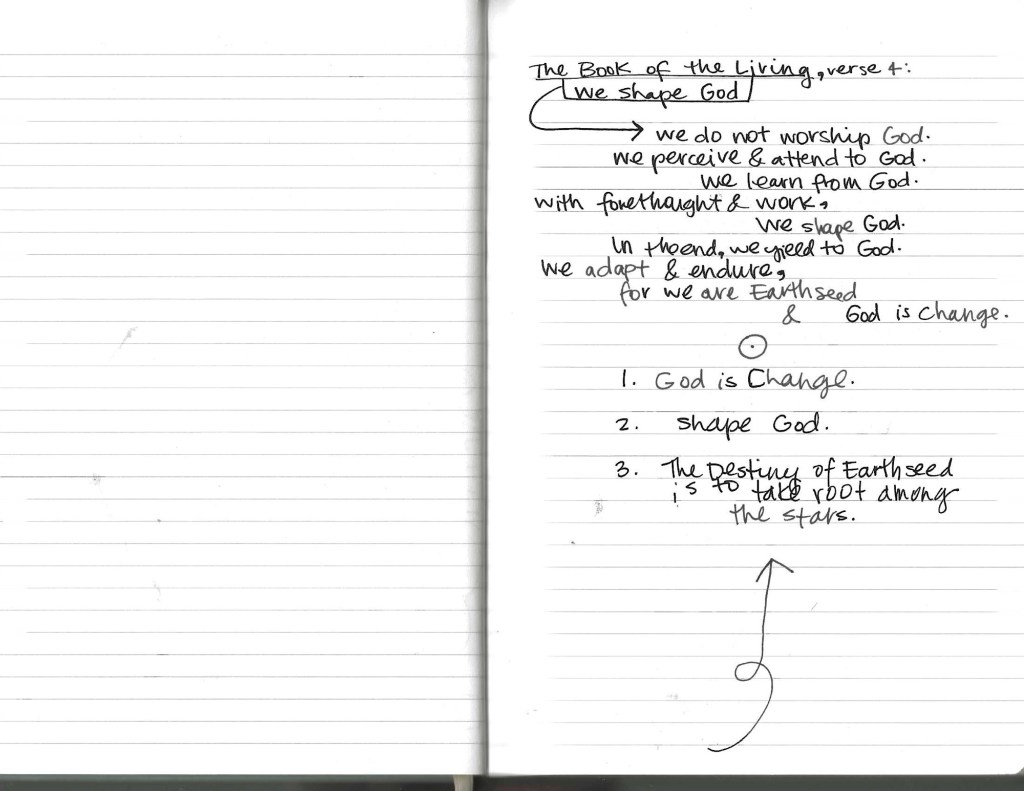 The Book of the Living, verse 4:
we shape God
we do not worship God.
we perceive & attend to God.
we learn from God.
with forethought & work,
we shape God.
In the end, we yield to God.
we adapt & endure,
for we are Earthseed
& God is Change.
1. God is Change.
2. shape God.
3. The Destiny of Earthseed
is to take root among
the stars.